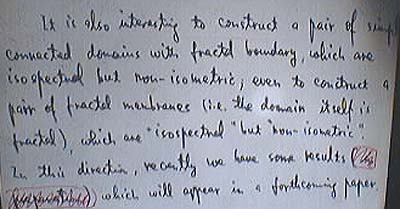 It is also interesting to construct a pair of simpl
connected domains with fractal boundary, which are
isospectral but non-isometric; even to construct a
pair of fractal membranes (i.e. the domain itself is
fractal), which are "isospectral" but "non-isometric".
In this direction, recently we have some results
which will appear in a forthcoming paper.